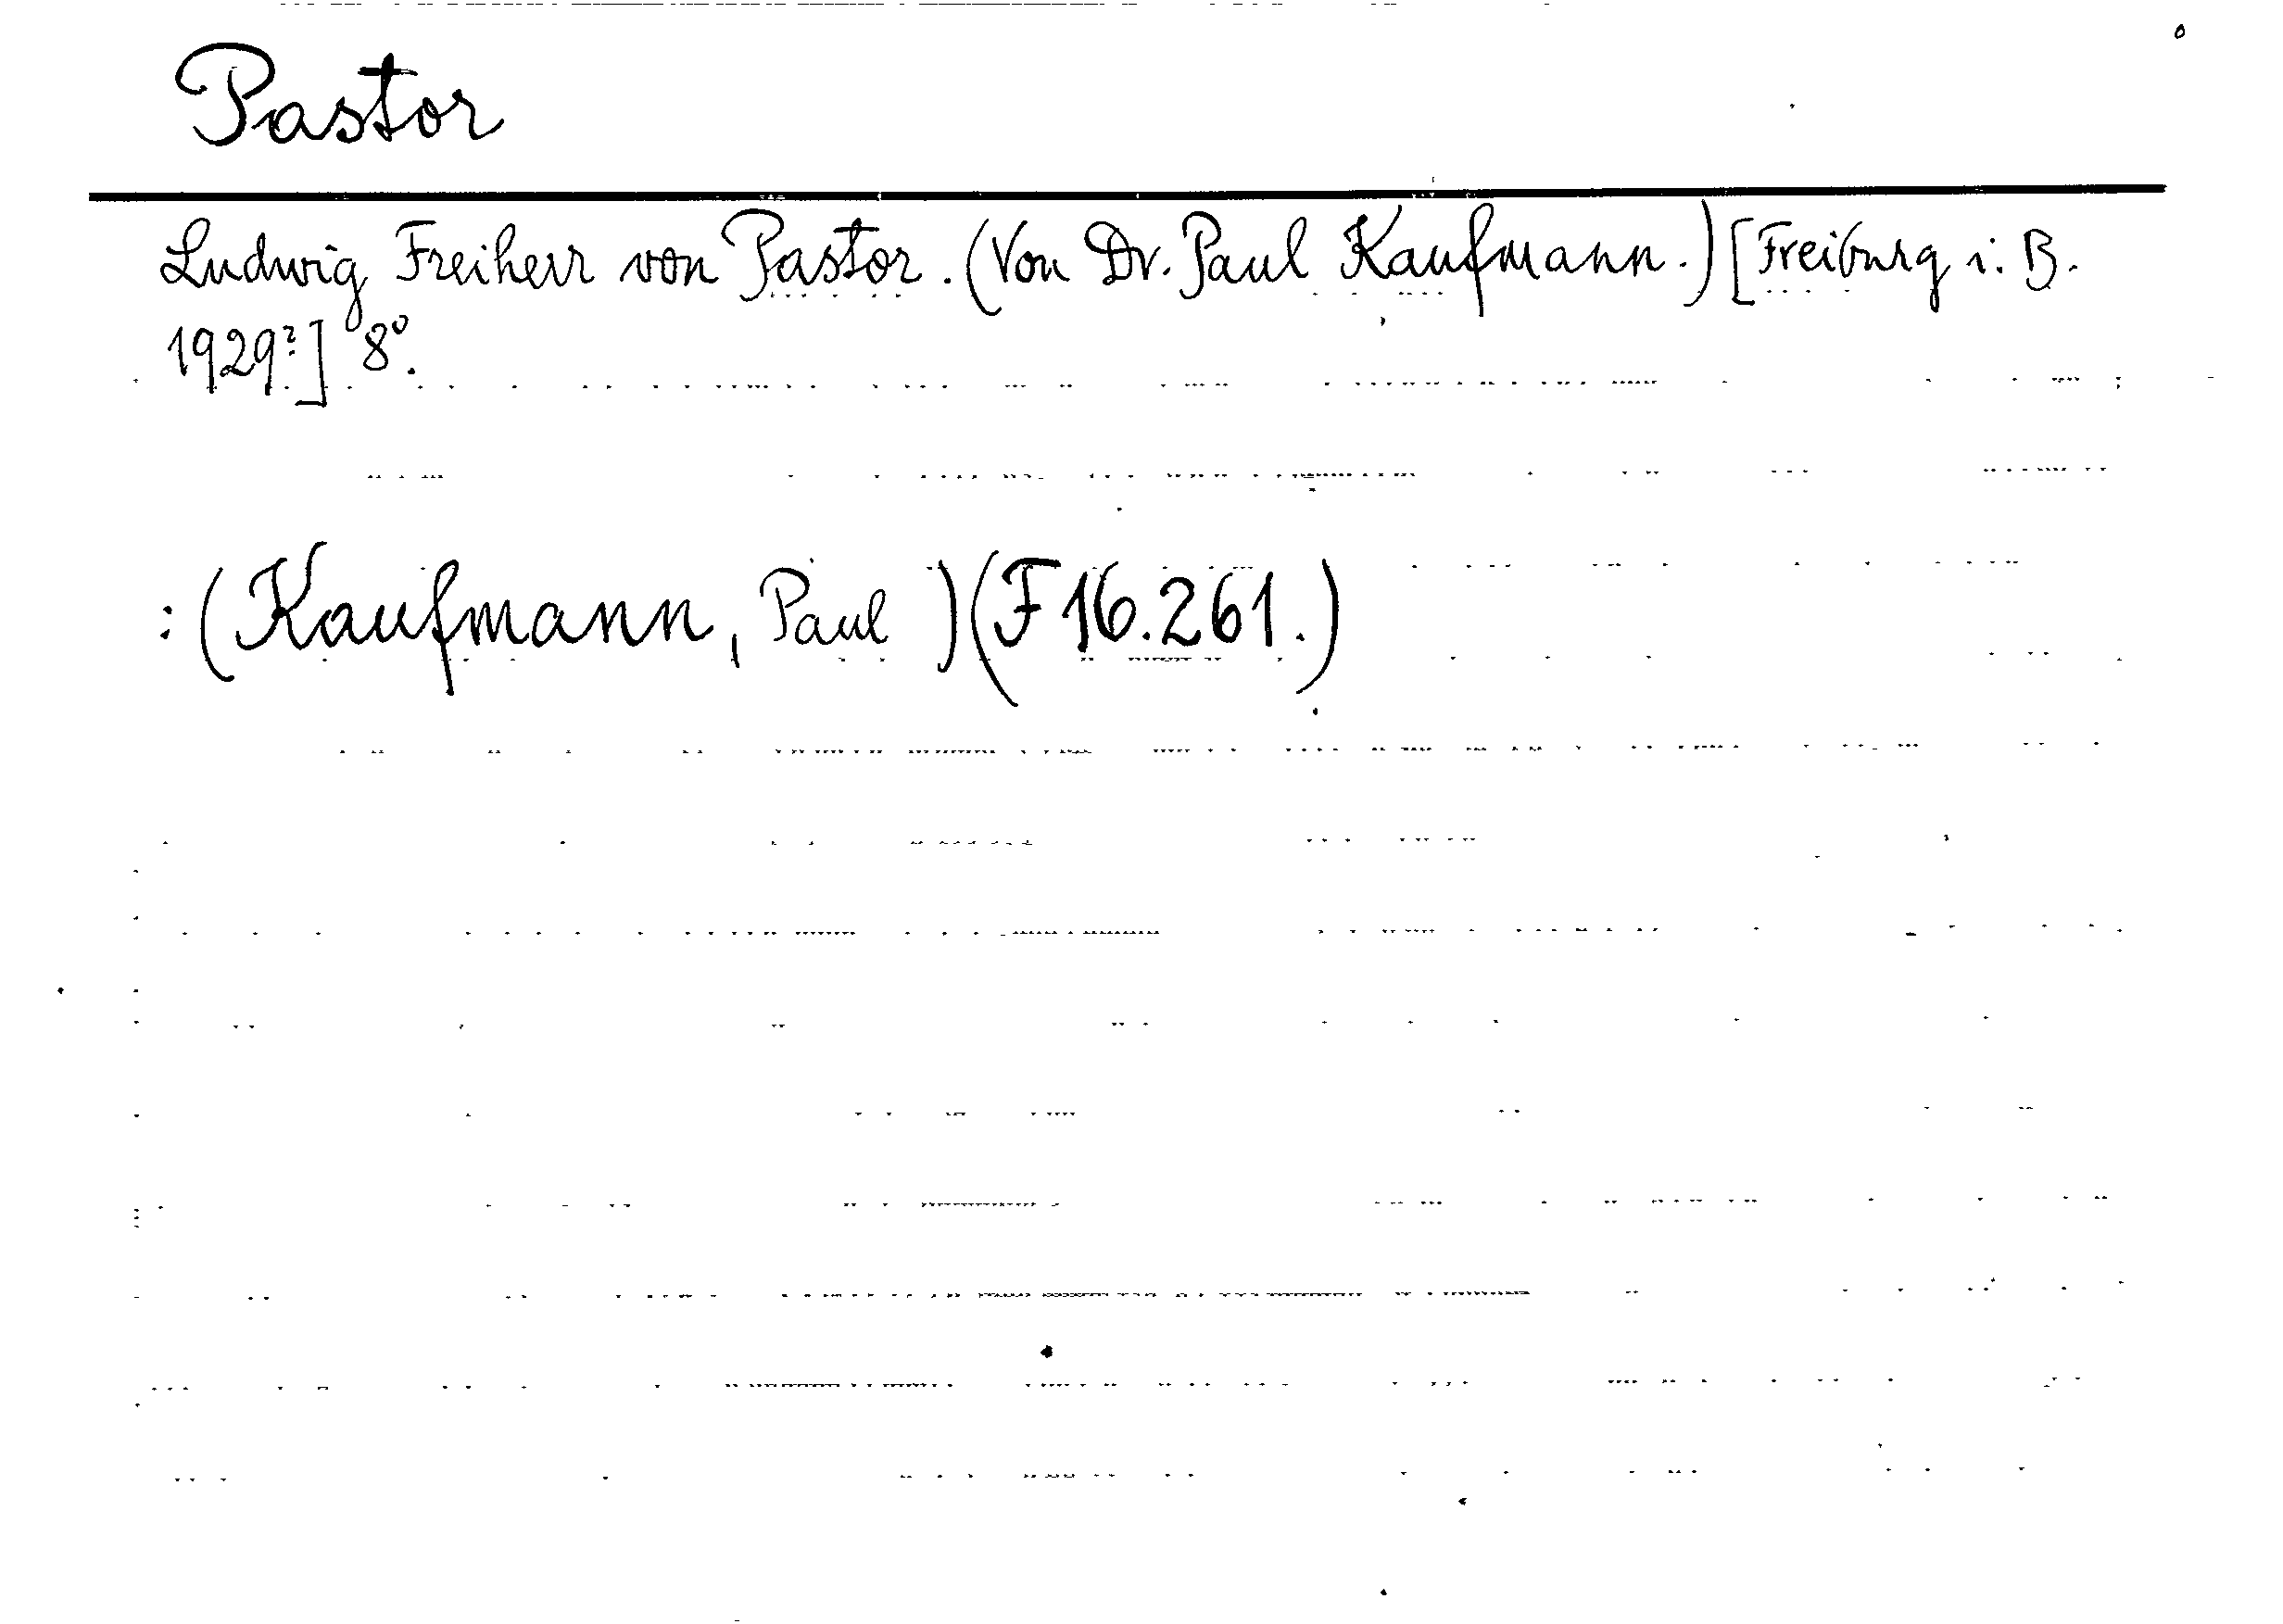 Pastor
Ludwig Freiherr von Pastor. (Von Dr. Paul Kaufmann.) [Freiburg i. B.
1929?] 8°.
: (Kaufmann, Paul ) (F 16.261.)